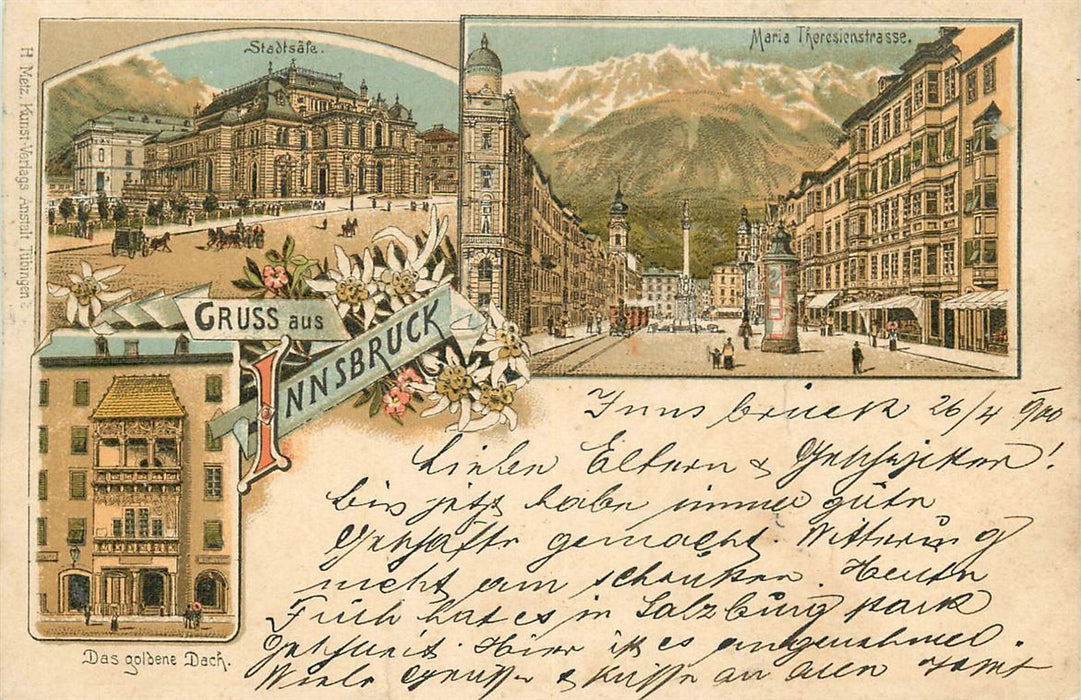 Stadtsäle.
Maria Theresienstrasse.
H. Metz, Kunst-Verlags-Anstalt Tübingen
GRUSS aus
INNSBRUCK
Das goldene Dach.
Innsbruck 26/4 900
Lieben Eltern & Geschwister!
bis jetzt habe immer gute
Geschäfte gemacht. Witterung
nicht am schönsten. Heute
Früh hat es in Salzburg stark
Geschneit. Hier ist es angenehmer.
Viele Grüsse & Küsse an allen